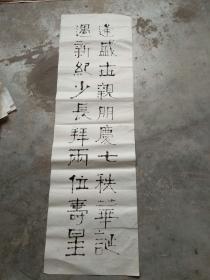 逢盛世親朋慶七秩華誕
遇新紀少長拜兩位壽星